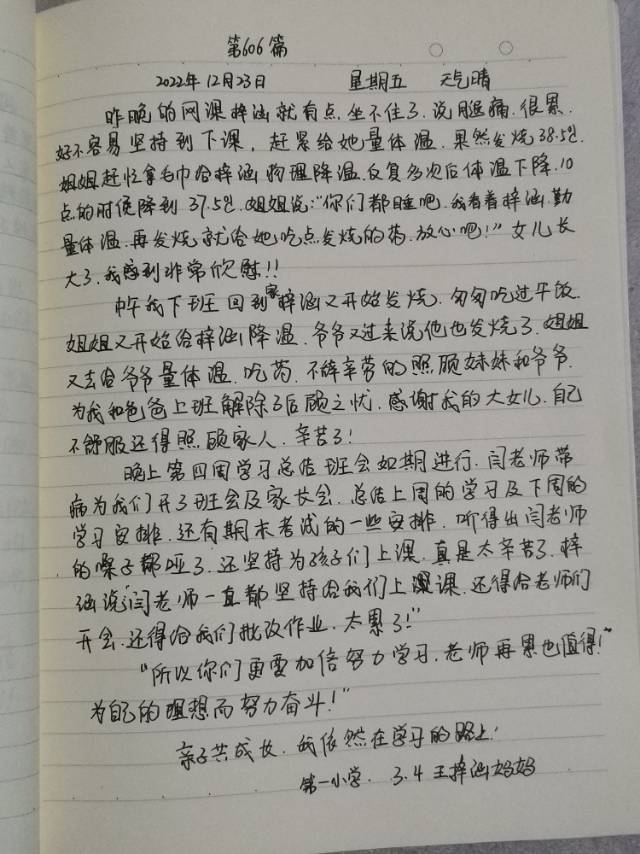 第606篇
2022年12月23日 星期五 天气晴
昨晚的网课梓涵就有点坐不住了,说腿痛.很累.
好不容易坚持到下课,赶紧给她量体温.果然发烧38.5℃.
姐姐赶忙拿毛巾给梓涵物理降温.反复多次后体温下降.10
点的时候降到37.5℃.姐姐说:“你们都睡吧.我看着梓涵.勤
量体温.再发烧就给她吃点发烧的药.放心吧!”女儿长
大了.我感到非常欣慰!!
中午我下班回到家梓涵又开始发烧.匆匆吃过午饭.
姐姐又开始给梓涵降温.爷爷又过来说他也发烧了.姐姐
又去给爷爷量体温.吃药.不辞辛劳的照顾妹妹和爷爷.
为我和爸爸上班解除了后顾之忧.感谢我的大女儿.自己
不舒服还得照顾家人.辛苦了!
晚上第四周学习总结班会如期进行.闫老师带
病为我们开了班会及家长会.总结上周的学习及下周的
学习安排.还有期末考试的一些安排.听得出闫老师
的嗓子都哑了.还坚持为孩子们上课.真是太辛苦了.梓
涵说:“闫老师一直都坚持给我们上课.还得给老师们
开会.还得给我们批改作业.太累了!”
“所以你们更要加倍努力学习.老师再累也值得!~
为自己的理想而努力奋斗!”
亲子共成长.我依然在学习的路上!
第一小学. 3.4 王梓涵妈妈